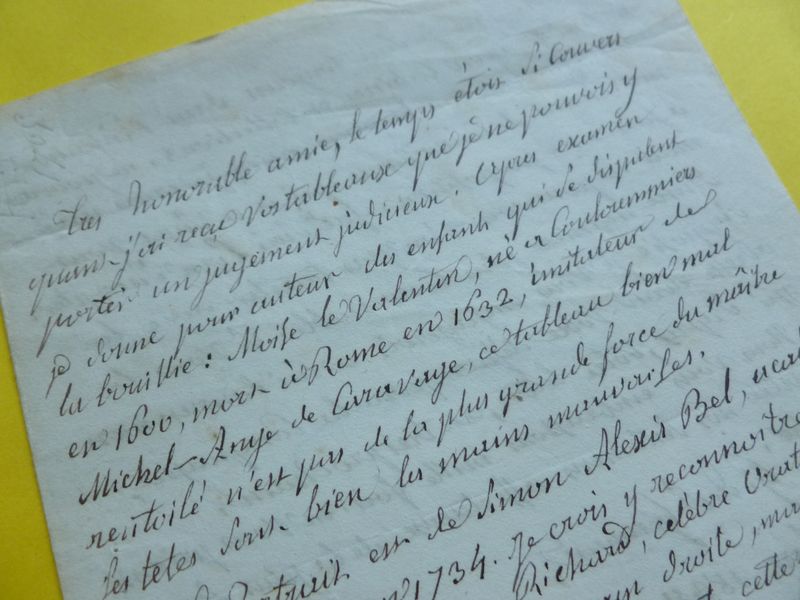 Tres honorable amie, le temps étoit si couvert
quant j'ai reçu vos tableaux que je ne pouvois y
porter un jugement judicieux. Apres examen
je donne pour auteur des enfants qui se disputent
la bouillie : Moïse le Valentin, né a Couloummiers
en 1600, mort à Rome en 1632, imitateur de
Michel-Ange de Caravage, ce tableau bien mal
rentoilé n'est pas de la plus grande force du maître
les tetes sont bien les mains mauvaises.
Portrait est de Simon Alexis Bel,
1734. Je crois y reconnoitre
Richard, celèbre
droite,
cette